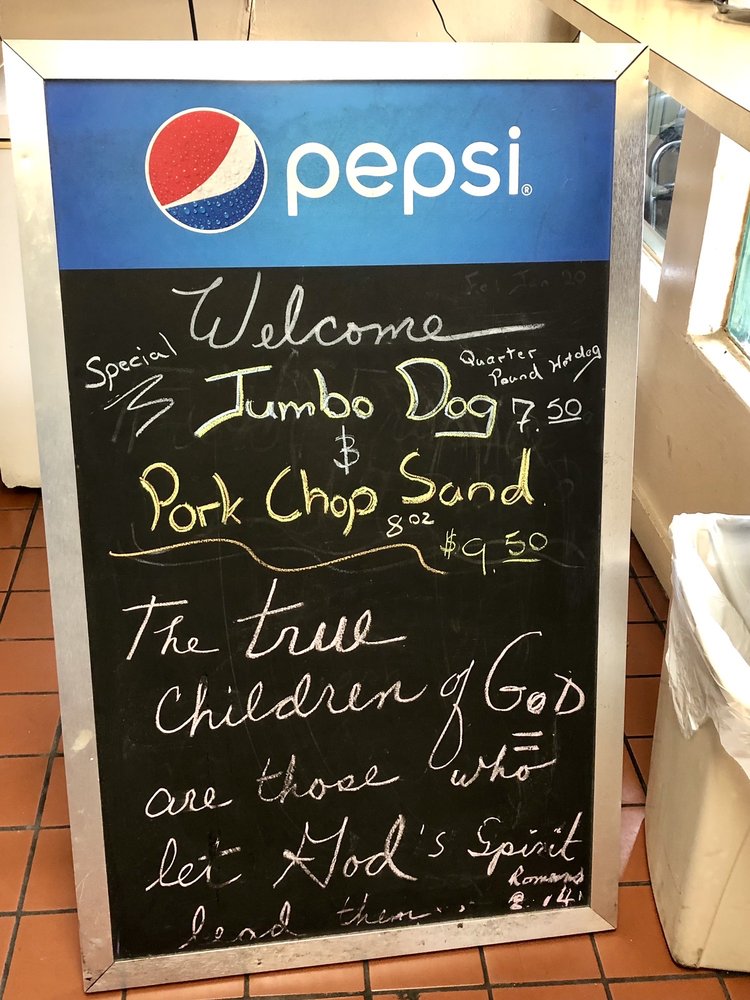 pepsi®
Welcome
Special
Quarter
Pound Hotdog
Jumbo Dog 7.50
&
Pork Chop Sand.
8 oz
$9.50
The true
Children of GOD
are those who
let God's Spirit
Romans
8:14
lead them...